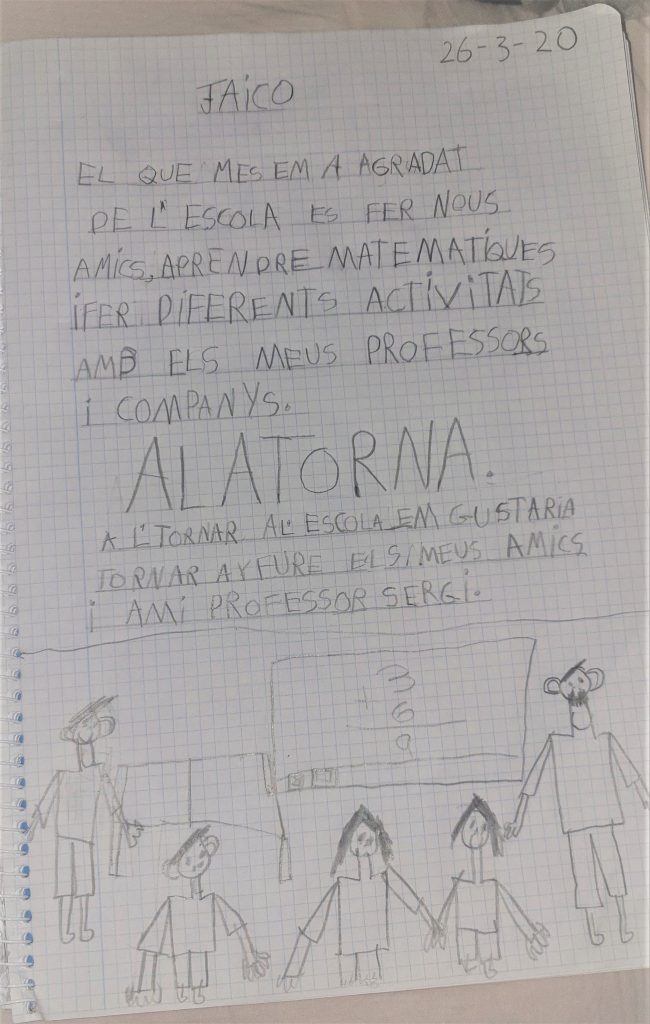 26-3-20
JAiCO
EL QUE MES EM A AGRADAT
DE L'ESCOLA ES FER NOUS
AMiCS, APRENDRE MATEMATiQUES
iFER DiFERENTS ACTiViTATS
AMB ELS MEUS PROFESSORS
i COMPANYS.
ALATORNA.
A L'TORNAR AL'ESCOLA EM GUSTARiA
TORNAR AYEURE ELS MEUS AMiCS
i AMi PROFESSOR SERGi.
3
+ 6
9